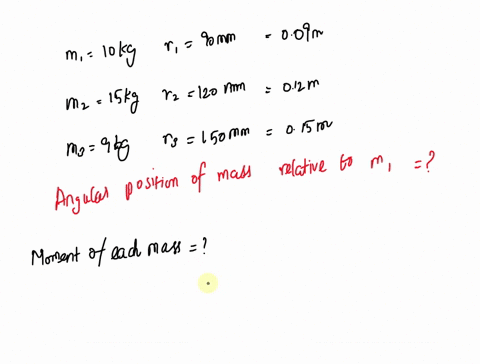 m₁ = 10kg r₁ = 90mm = 0.09m
m₂ = 15kg r₂ = 120 mm = 0.12m
m₃ = 9kg r₃ = 150mm = 0.15m
Angular position of mass relative to m₁ = ?
Moment of each mass = ?